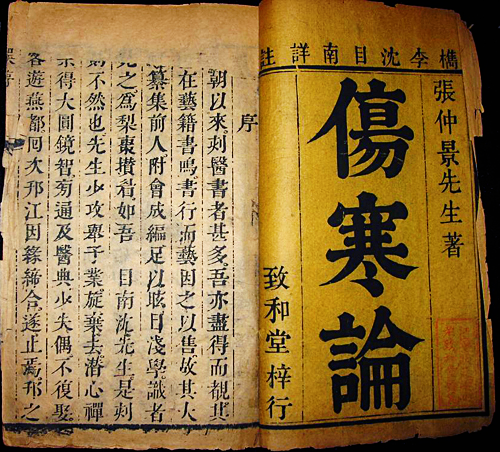 檇李沈目南詳註
張仲景先生著
傷寒論
致和堂梓行
序
朝以來刻醫書者甚多吾亦盡得而觀其
在藝籍書鳴書行而藝因之以售故其大
纂集前人附會成編足以眩目淺學識者
見之爲梨棗攢眉如吾 目南沈先生是刻
則不然也先生少攻舉子業旋棄去潛心禪
宗得大圓鏡智旁通及醫典少失偶不復娶
客遊燕都回次邗江因緣締合遂止焉邗之